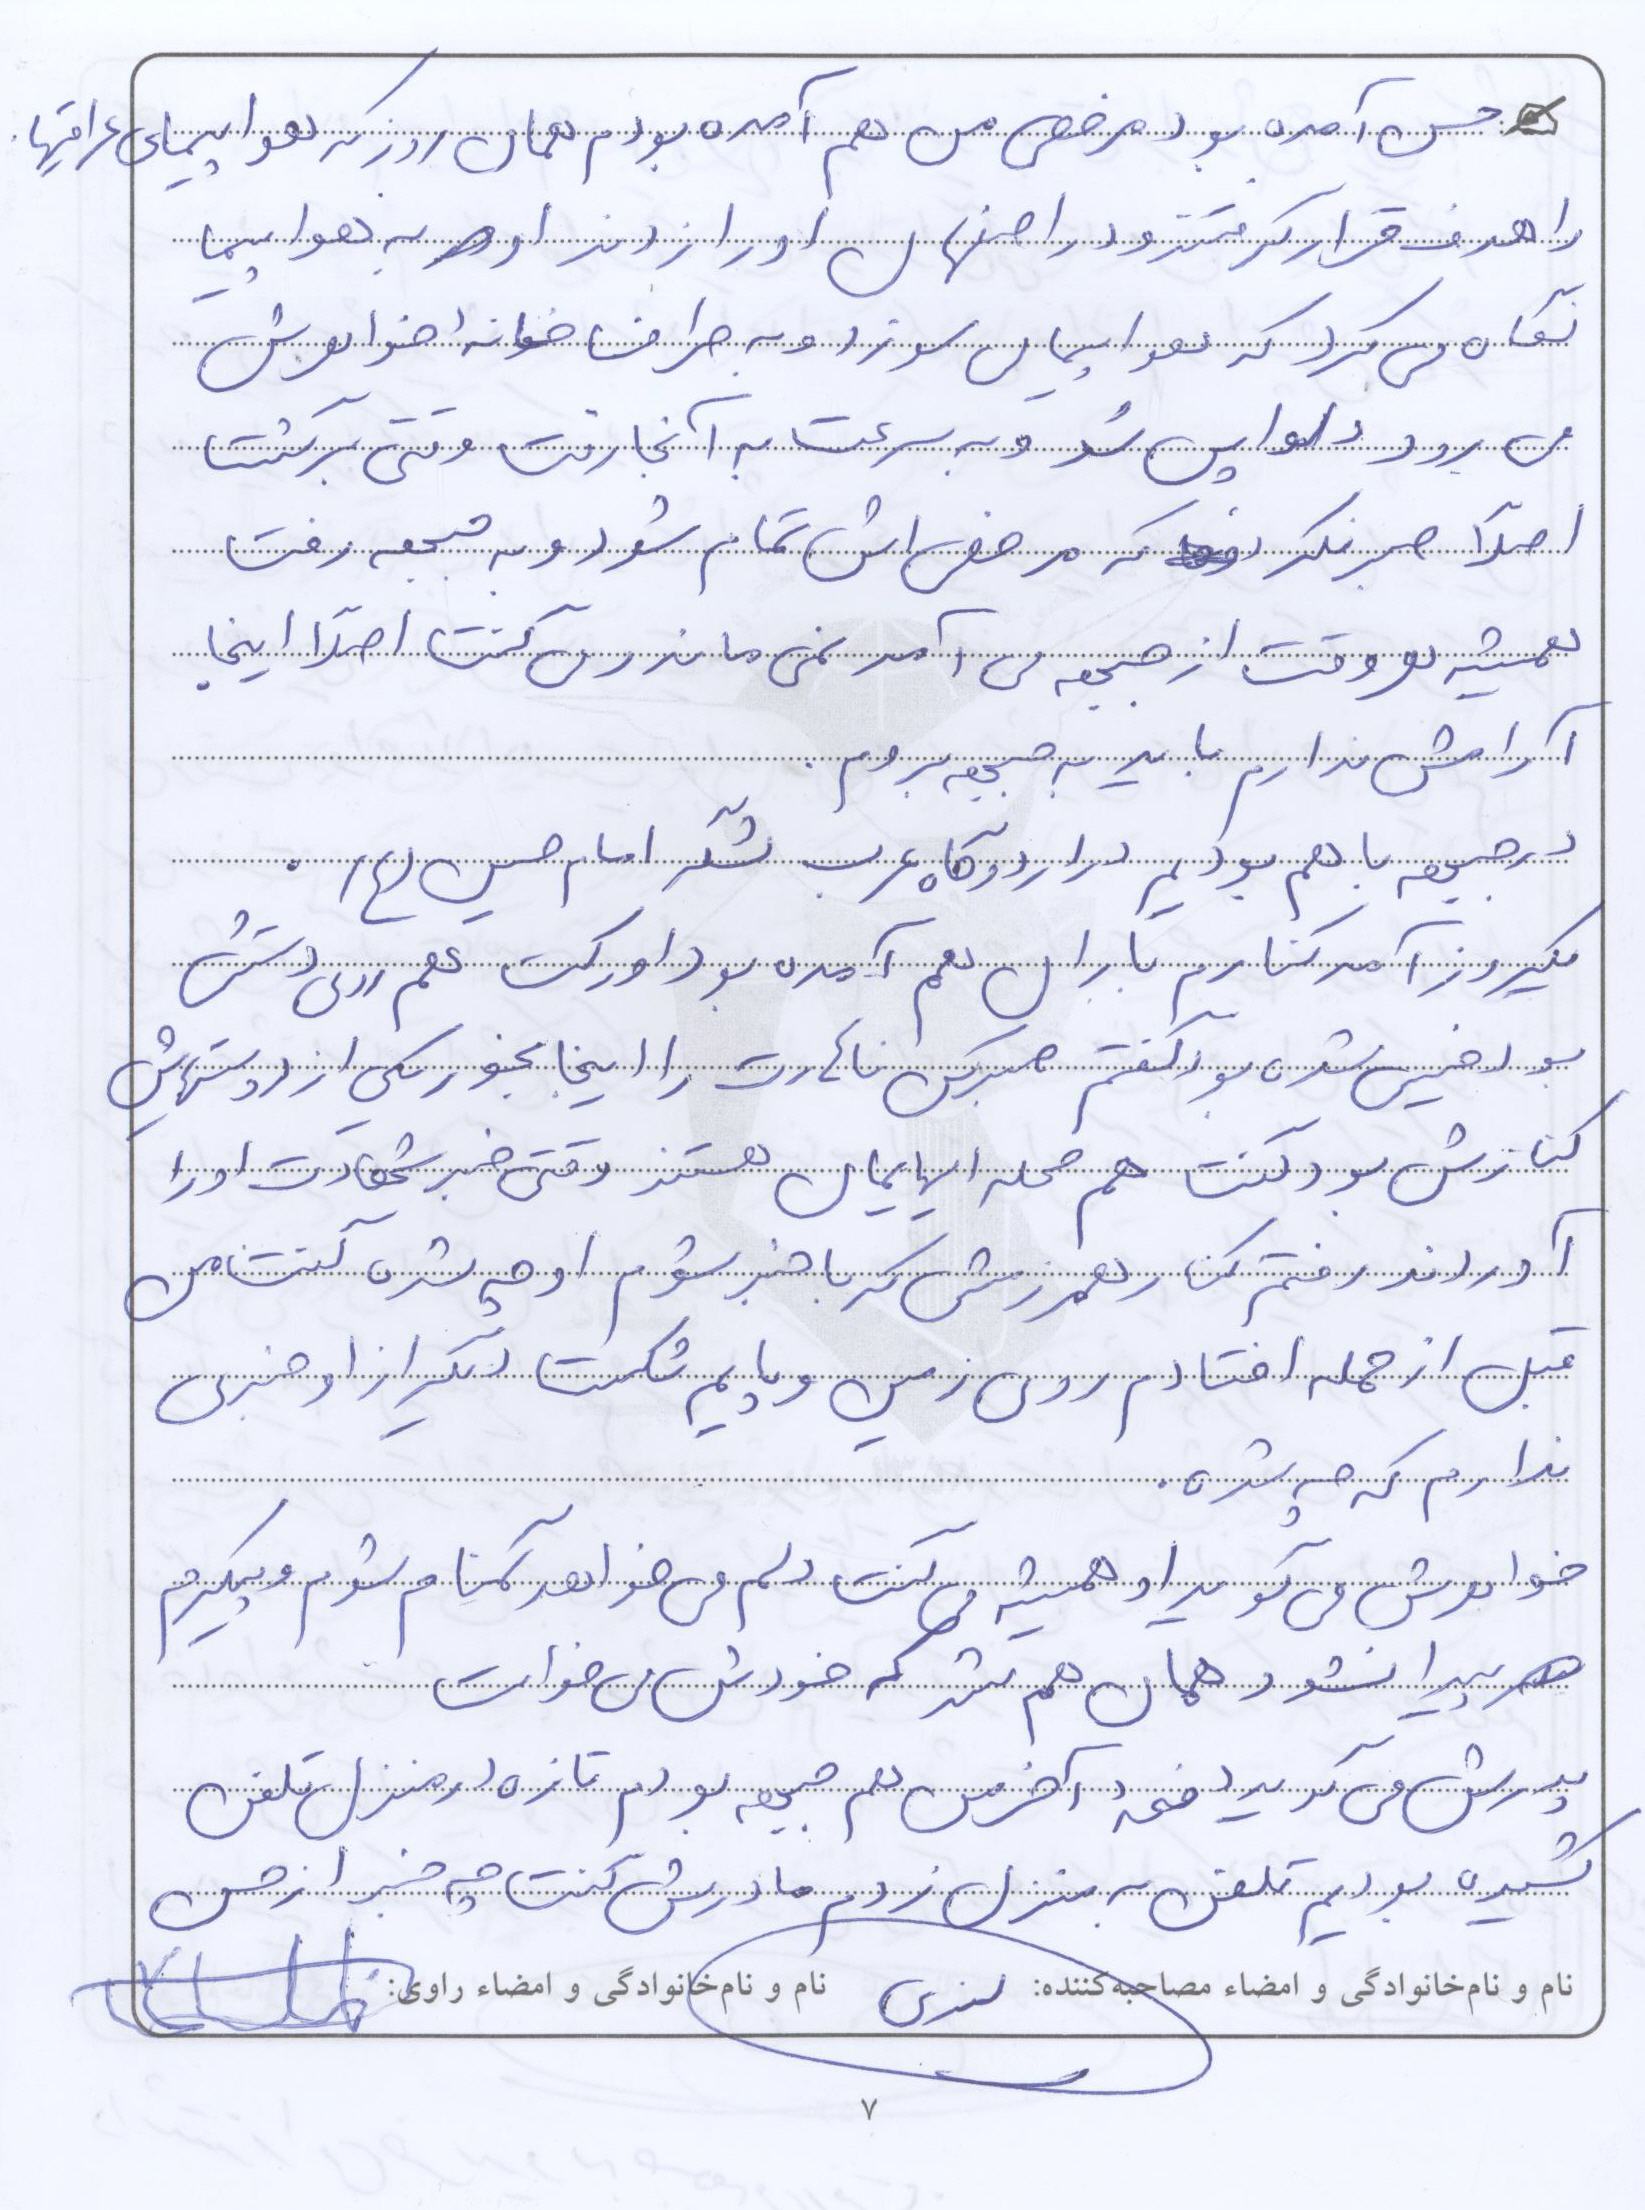 حسن آمده بود مرخصی من هم آمده بودم همان روز که هواپیمای عراقیها
را هدف قرار گرفتند و در اصفهان او را زدند او به هواپیما
نگاه می کرد که هواپیما می سوزد و به طرف خانه خواهرش
می رود دلواپس شد و به سرعت به آنجا رفت وقتی برگشت
اصلاً صبر نکرد که مرخصی اش تمام شود و به جبهه رفت
همیشه هر وقت از جبهه می آمد نمی ماند و می گفت اصلاً اینجا
آرامش ندارم باید به جبهه بروم .
در جبهه با هم بودیم در اردوگاه عرب لشگر امام حسین (ع) .
یکروز آمد کنارم باران هم آمده بود اورکت هم روی دستش
بود خیس شده بود گفتم صبر کن ناهارت را اینجا بخور یکی از دوستهاش
کنارش بود گفت هم محله ایهایمان هستند وقتی خبر شهادت او را
آوردند رفتم کنار همرزمش که با خبر شوم او چه شده گفت من
قبل از حمله افتادم روی زمین و پایم شکست دیگر از او خبری
ندارم که چه شده .
خواهرش می گوید او همیشه می گفت دلم می خواهد گمنام شوم و پیکرم
پیدا نشود همان هم شد که خودش می خواست
پدرش می گوید دفعه آخر من هم جبهه بودم تازه در منزل تلفن
کشیده بودیم تلفن به منزل زدم مادرش گفت چه خبر از حسن
نام و نام‌خانوادگی و امضاء مصاحبه‌کننده: نام و نام‌خانوادگی و امضاء راوی:
۷